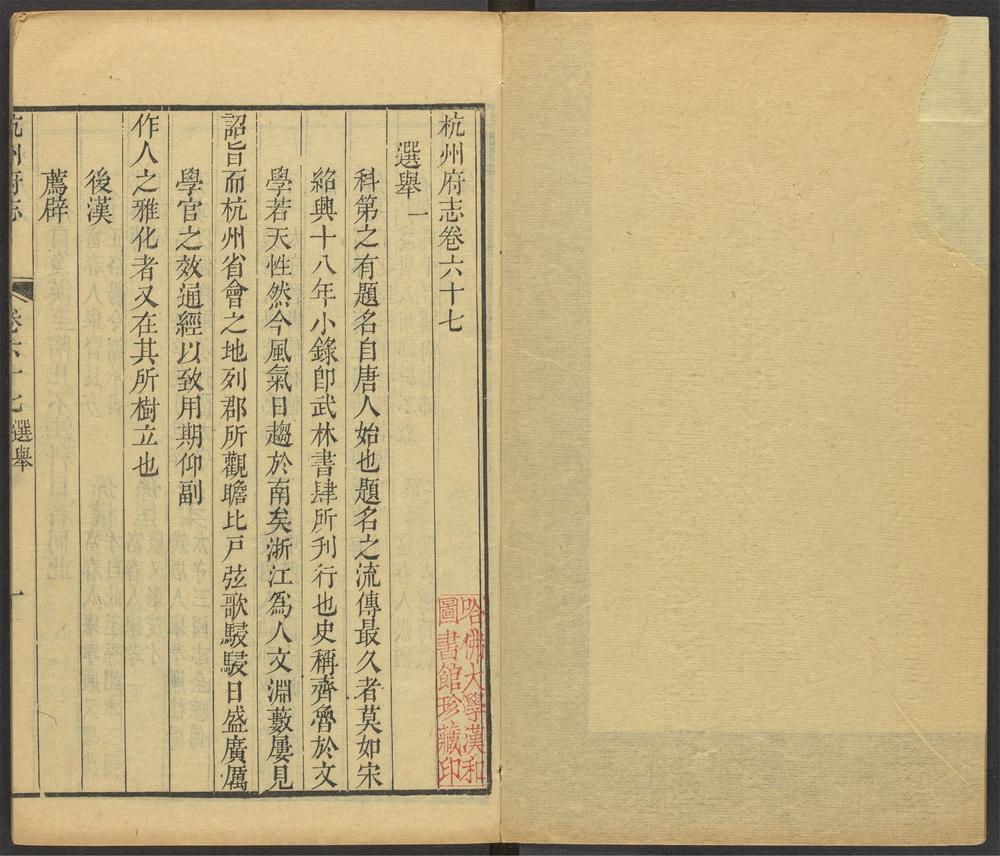 杭州府志卷六十七
選舉一
科第之有題名自唐人始也題名之流傳最久者莫如宋
紹興十八年小錄卽武林書肆所刊行也史稱齊魯於文
學若天性然今風氣日趨於南矣浙江爲人文淵藪屢見
詔旨而杭州省會之地列郡所觀瞻比戶弦歌駸駸日盛廣厲
學官之效通經以致用期仰副
作人之雅化者又在其所樹立也
後漢
薦辟
杭州府志
卷六十七
選舉
一
哈佛大學漢和
圖書館珍藏印